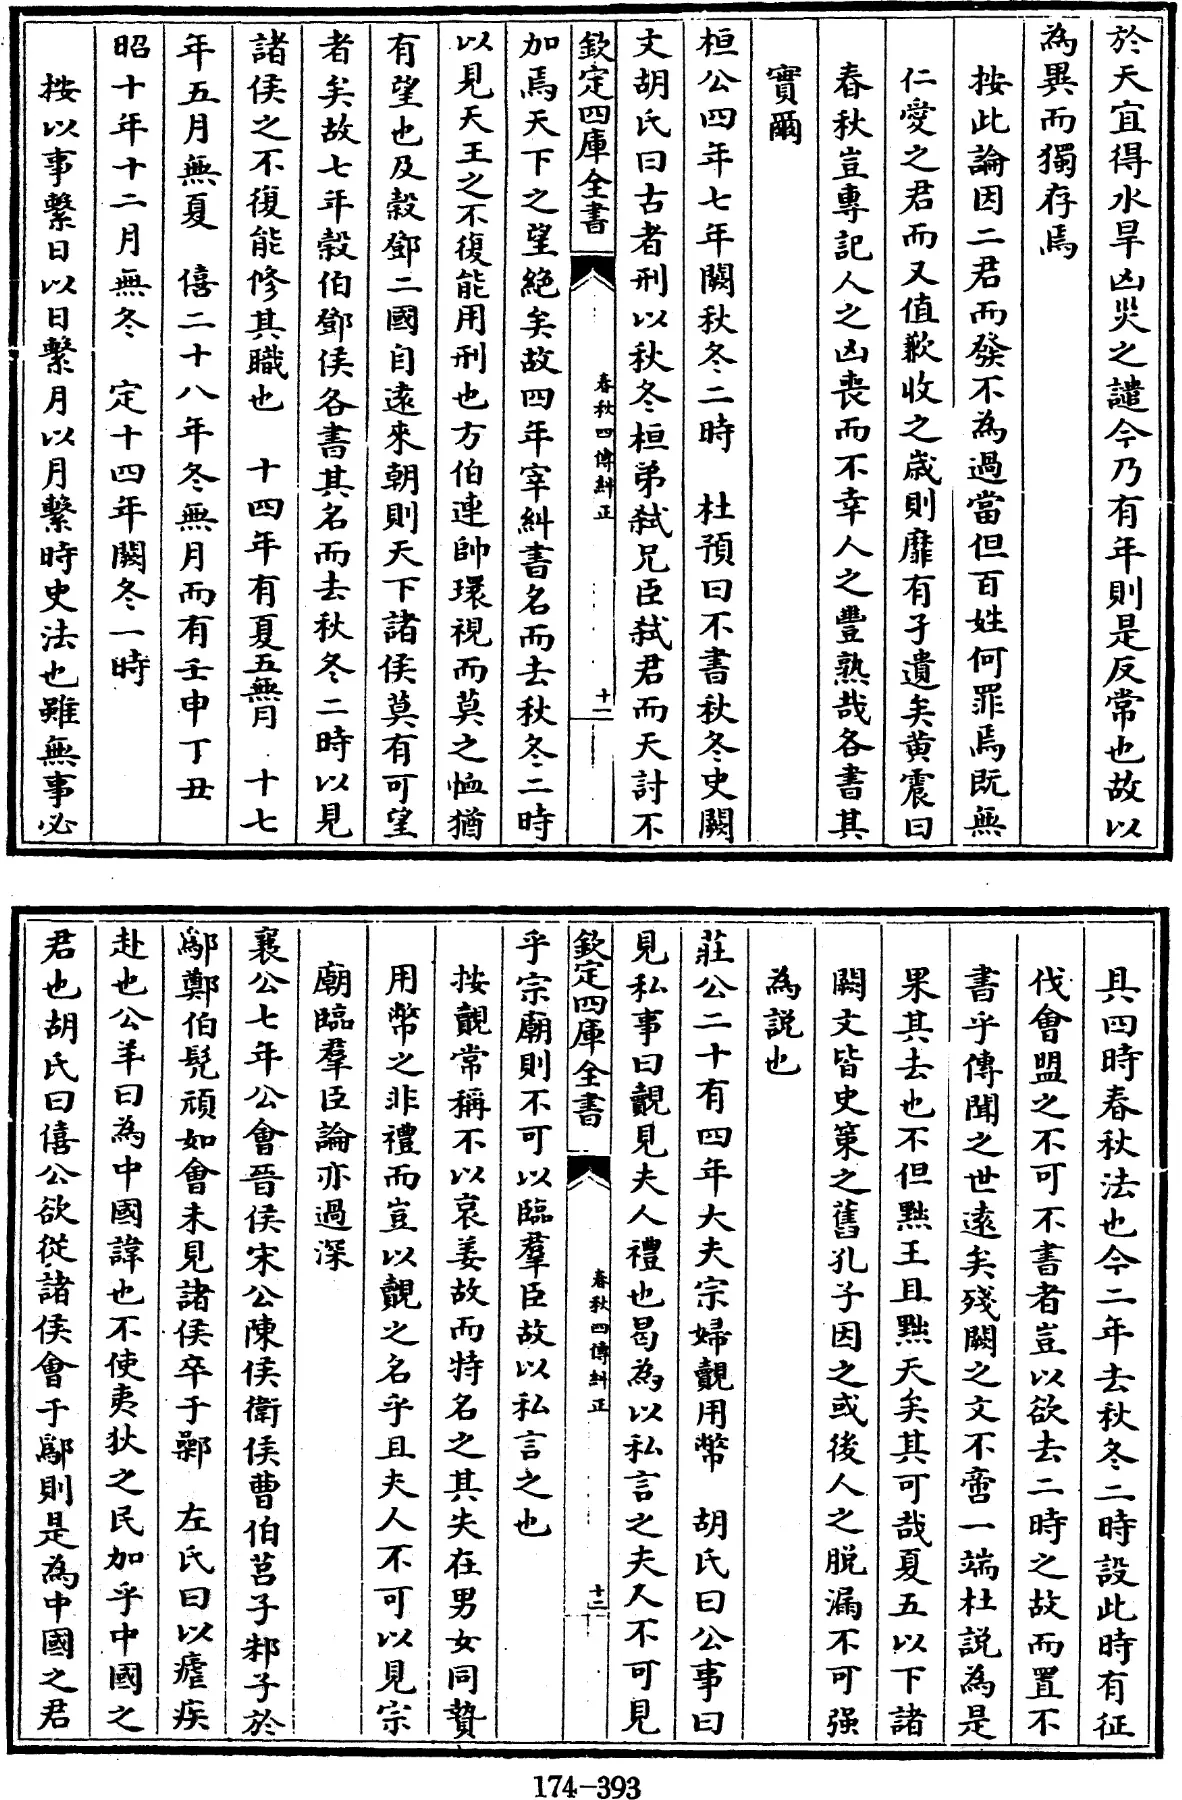 於天宜得水旱凶災之譴今乃有年則是反常也故以
為異而獨存焉
按此論因二君而發不為過當但百姓何罪焉既無
仁愛之君而又值歉收之歳則靡有孑遺矣黄震曰
春秋豈專記人之凶喪而不幸人之豐熟哉各書其
實爾
桓公四年七年闕秋冬二時　杜預曰不書秋冬史闕
文胡氏曰古者刑以秋冬桓弟弑兄臣弑君而天討不
欽定四庫全書　春秋四傳糾正　十一
加焉天下之望絶矣故四年宰糾書名而去秋冬二時
以見天王之不復能用刑也方伯連帥環視而莫之恤猶
有望也及穀鄧二國自逺來朝則天下諸侯莫有可望
者矣故七年穀伯鄧侯各書其名而去秋冬二時以見
諸侯之不復能修其職也　十四年有夏五無月　十七
年五月無夏　僖二十八年冬無月而有壬申丁丑
昭十年十二月無冬　定十四年闕冬一時
按以事繫日以日繫月以月繫時史法也雖無事必
具四時春秋法也今二年去秋冬二時設此時有征
伐會盟之不可不書者豈以欲去二時之故而置不
書乎傳聞之世逺矣殘闕之文不啻一端杜説為是
果其去也不但黜王且黜天矣其可哉夏五以下諸
闕文皆史策之舊孔子因之或後人之脱漏不可强
為説也
莊公二十有四年大夫宗婦覿用幣　胡氏曰公事曰
見私事曰覿見夫人禮也曷為以私言之夫人不可見
欽定四庫全書　春秋四傳糾正　十二
乎宗廟則不可以臨羣臣故以私言之也
按覿常稱不以哀姜故而特名之其失在男女同贄
用幣之非禮而豈以覿之名乎且夫人不可以見宗
廟臨羣臣論亦過深
襄公七年公會晉侯宋公陳侯衛侯曹伯莒子邾子於
鄬鄭伯髠頑如會未見諸侯卒于鄵　左氏曰以瘧疾
赴也公羊曰為中國諱也不使夷狄之民加乎中國之
君也胡氏曰僖公欲從諸侯會于鄬則是為中國之君
174-393